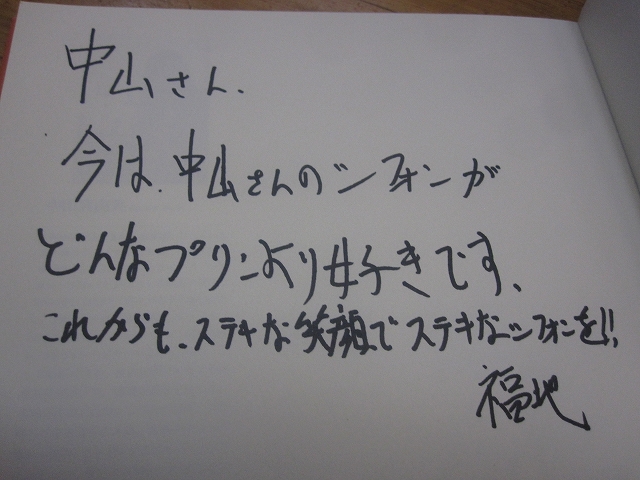 中山さん、
今は、中山さんのシフォンが
どんなプリンより好きです、
これからも、ステキな笑顔でステキなシフォンを!!
福地